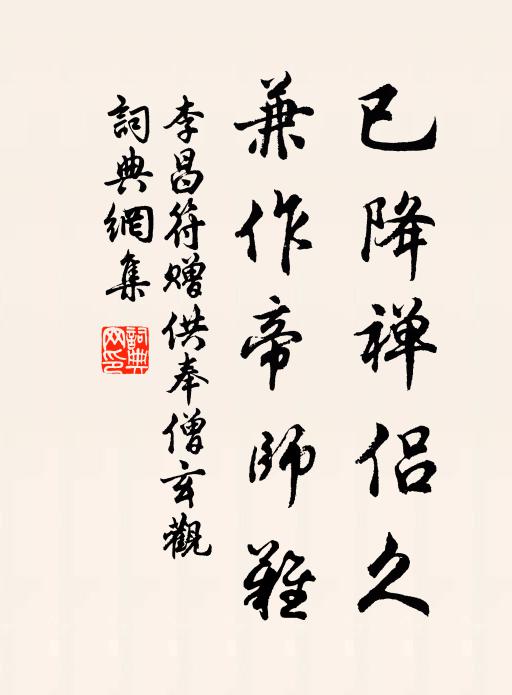 已降禅侣久
兼作帝師難
李昌符赠供奉僧玄觀
詞典網集
詞典
网印